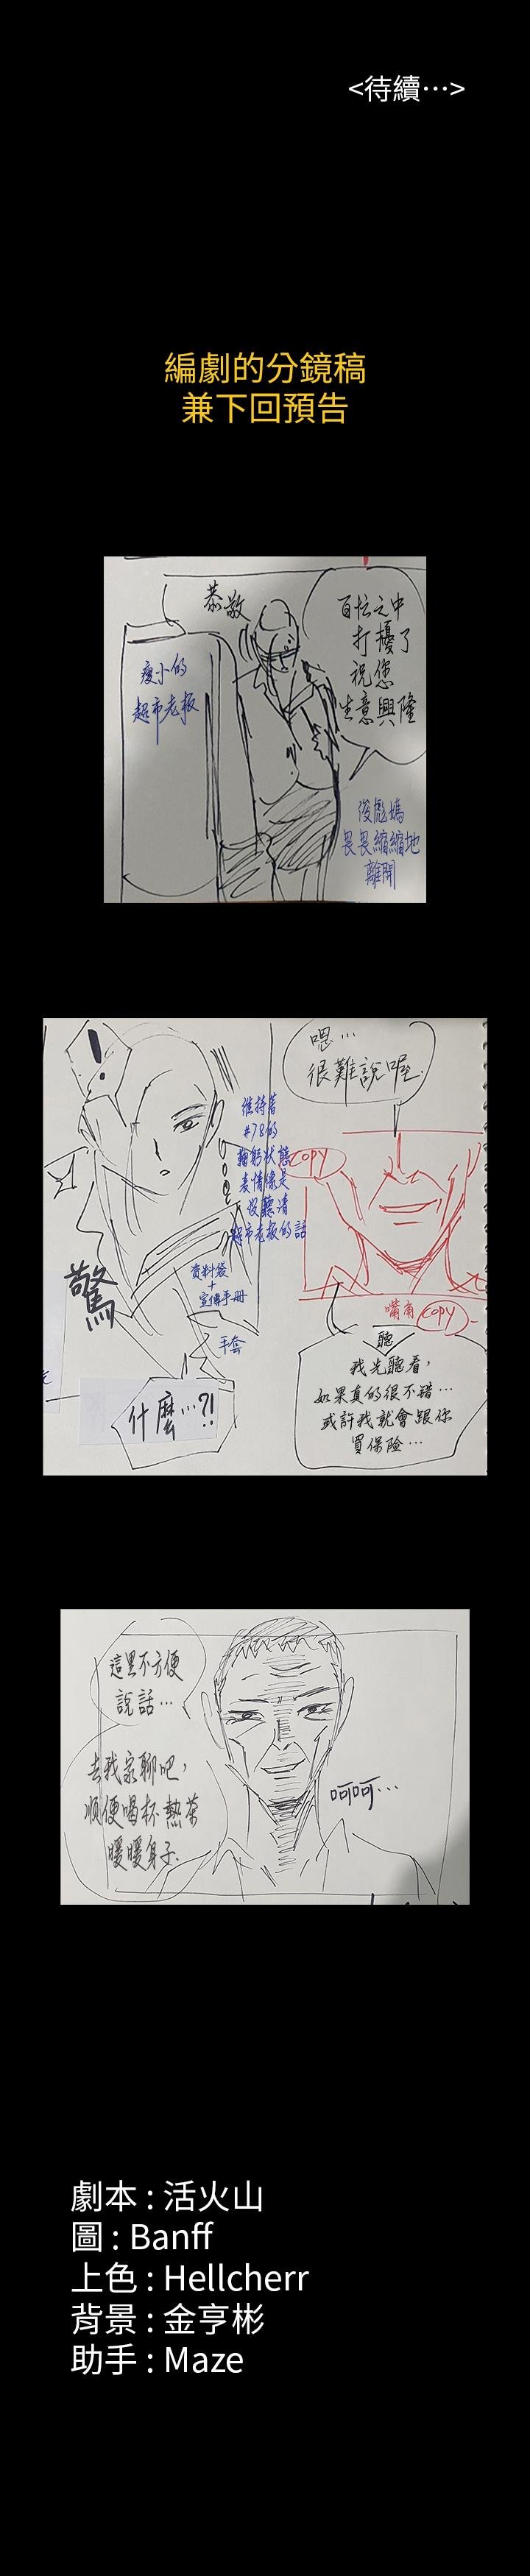 <待續…>
編劇的分鏡稿
兼下回預告
恭敬
百忙之中
打擾了
祝您
生意興隆
瘦小的
超市老板
俊彪媽
畏畏縮縮地
離開
嗯…
很難說喔.
!
維持著
#78的
鞠躬狀態
表情像是
沒聽清
超市老板的話
COPY
驚
資料袋
+
宣傳手冊
手套
嘴角 COPY
什麼…?!
聽
我先聽看,
如果真的很不錯…
或許我就會跟你
買保險…
這里不方便
說話…
去我家聊吧,
順便喝杯熱茶
暖暖身子.
呵呵…
劇本 : 活火山
圖 : Banff
上色 : Hellcherr
背景 : 金亨彬
助手 : Maze